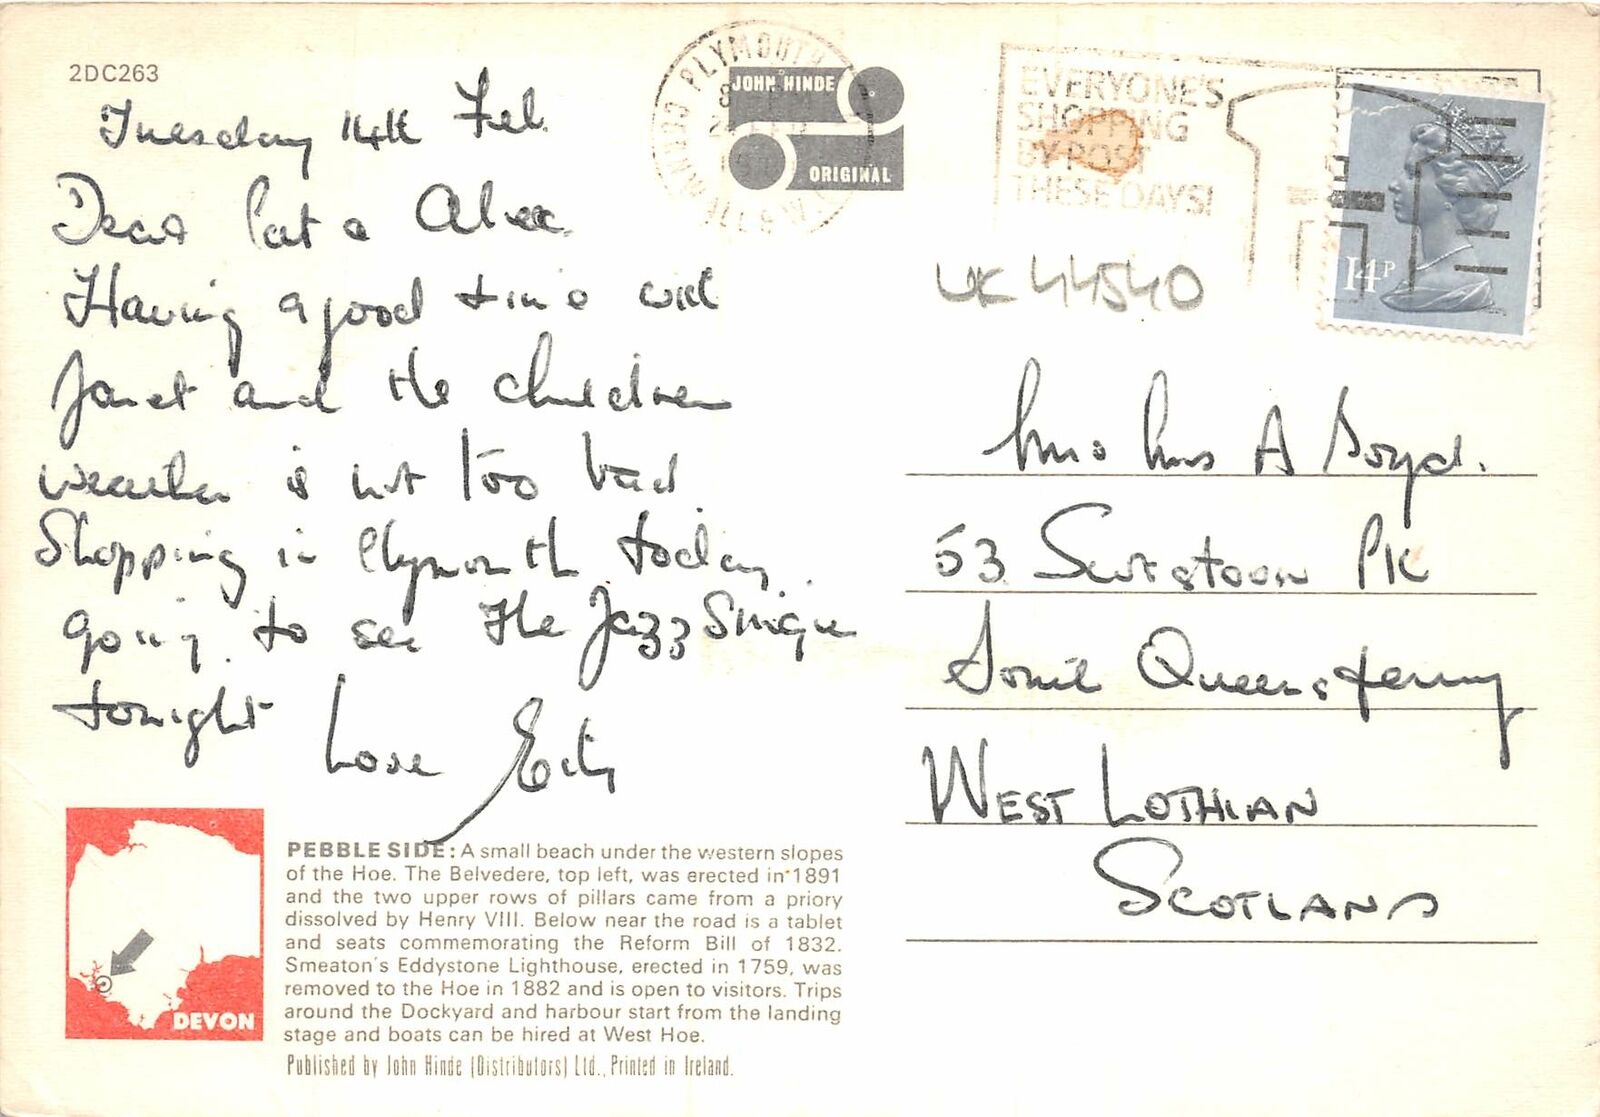 2DC263
Tuesday 14th Feb.
Dear Pat & Alex.
Having a good time with
Janet and the children
weather is not too bad.
Shopping in Plymouth today.
going to see the Jazz Singer
tonight
Love
PLYMOUTH
CORNWALL
JOHN HINDE
ORIGINAL
EVERYONE'S
SHOPPING
BY POST
THESE DAYS!
14P
UK 44540
Mr & Mrs A Boyd.
53 Scotstoun Pk
South Queensferry
WEST LOTHIAN
SCOTLAND
DEVON
PEBBLE SIDE: A small beach under the western slopes
of the Hoe. The Belvedere, top left, was erected in 1891
and the two upper rows of pillars came from a priory
dissolved by Henry VIII. Below near the road is a tablet
and seats commemorating the Reform Bill of 1832.
Smeaton's Eddystone Lighthouse, erected in 1759, was
removed to the Hoe in 1882 and is open to visitors. Trips
around the Dockyard and harbour start from the landing
stage and boats can be hired at West Hoe.
Published by John Hinde (Distributors) Ltd., Printed in Ireland.